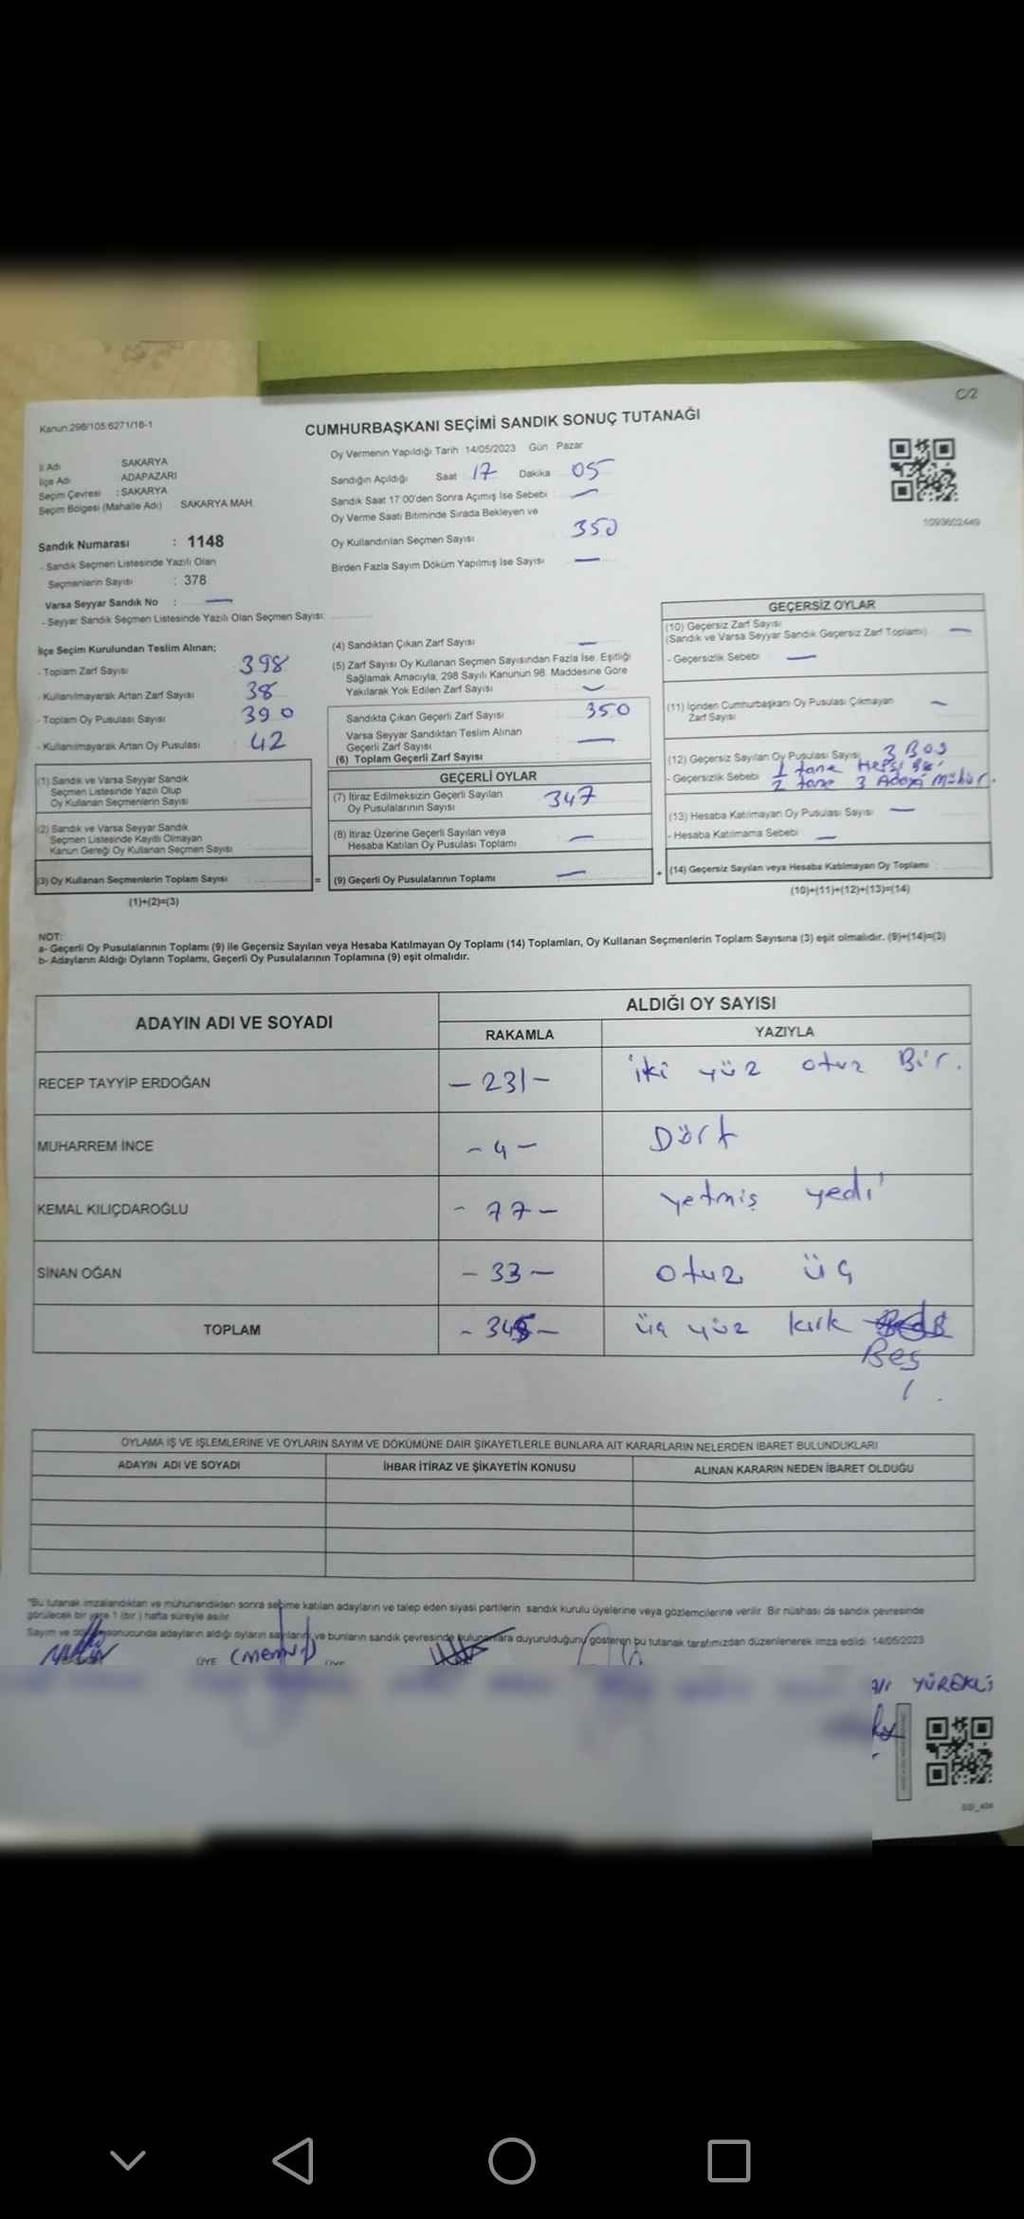 C/2
Kanun:298/105:6271/18-1
CUMHURBAŞKANI SEÇİMİ SANDIK SONUÇ TUTANAĞI
İl Adı SAKARYA
İlçe Adı ADAPAZARI
Seçim Çevresi : SAKARYA
Seçim Bölgesi (Mahalle Adı) SAKARYA MAH.
Oy Vermenin Yapıldığı Tarih 14/05/2023 Gün Pazar
Sandığın Açıldığı Saat 17 Dakika 05
Sandık Saat 17:00'den Sonra Açımış İse Sebebi —
Oy Verme Saati Bitiminde Sırada Bekleyen ve
Oy Kullandırılan Seçmen Sayısı 350
Birden Fazla Sayım Döküm Yapılmış İse Sayısı —
1093602449
Sandık Numarası : 1148
- Sandık Seçmen Listesinde Yazılı Olan
Seçmenlerin Sayısı : 378
Varsa Seyyar Sandık No : —
- Seyyar Sandık Seçmen Listesinde Yazılı Olan Seçmen Sayısı:
İlçe Seçim Kurulundan Teslim Alınan;
- Toplam Zarf Sayısı 398
- Kullanılmayarak Artan Zarf Sayısı 38
- Toplam Oy Pusulası Sayısı 390
- Kullanılmayarak Artan Oy Pusulası 42
(1) Sandık ve Varsa Seyyar Sandık
Seçmen Listesinde Yazılı Olup
Oy Kullanan Seçmenlerin Sayısı
(2) Sandık ve Varsa Seyyar Sandık
Seçmen Listesinde Kayıtlı Olmayan
Kanun Gereği Oy Kullanan Seçmen Sayısı
(3) Oy Kullanan Seçmenlerin Toplam Sayısı =
(1)+(2)=(3)
(4) Sandıktan Çıkan Zarf Sayısı —
(5) Zarf Sayısı Oy Kullanan Seçmen Sayısından Fazla İse, Eşitliği
Sağlamak Amacıyla, 298 Sayılı Kanunun 98. Maddesine Göre
Yakılarak Yok Edilen Zarf Sayısı —
Sandıkta Çıkan Geçerli Zarf Sayısı 350
Varsa Seyyar Sandıktan Teslim Alınan
Geçerli Zarf Sayısı —
(6) Toplam Geçerli Zarf Sayısı
GEÇERLİ OYLAR
(7) İtiraz Edilmeksizin Geçerli Sayılan
Oy Pusulalarının Sayısı 347
(8) İtiraz Üzerine Geçerli Sayılan veya
Hesaba Katılan Oy Pusulası Toplamı —
(9) Geçerli Oy Pusulalarının Toplamı — +
GEÇERSİZ OYLAR
(10) Geçersiz Zarf Sayısı
(Sandık ve Varsa Seyyar Sandık Geçersiz Zarf Toplamı) —
- Geçersizlik Sebebi —
(11) İçinden Cumhurbaşkanı Oy Pusulası Çıkmayan
Zarf Sayısı —
(12) Geçersiz Sayılan Oy Pusulası Sayısı 3 Boş
- Geçersizlik Sebebi 1 tane Hepsi
2 tane 3 Adaya Mühür.
(13) Hesaba Katılmayan Oy Pusulası Sayısı —
- Hesaba Katılmama Sebebi —
(14) Geçersiz Sayılan veya Hesaba Katılmayan Oy Toplamı
(10)+(11)+(12)+(13)=(14)
NOT:
a- Geçerli Oy Pusulalarının Toplamı (9) ile Geçersiz Sayılan veya Hesaba Katılmayan Oy Toplamı (14) Toplamları, Oy Kullanan Seçmenlerin Toplam Sayısına (3) eşit olmalıdır. (9)+(14)=(3)
b- Adayların Aldığı Oyların Toplamı, Geçerli Oy Pusulalarının Toplamına (9) eşit olmalıdır.
ADAYIN ADI VE SOYADI ALDIĞI OY SAYISI
RAKAMLA YAZIYLA
RECEP TAYYİP ERDOĞAN - 231 - iki yüz otuz Bir.
MUHARREM İNCE - 4 - Dört
KEMAL KILIÇDAROĞLU - 77 - yetmiş yedi
SİNAN OĞAN - 33 - otuz üç
TOPLAM - 345 - üç yüz kırk
Beş
OYLAMA İŞ VE İŞLEMLERİNE VE OYLARIN SAYIM VE DÖKÜMÜNE DAİR ŞİKAYETLERLE BUNLARA AİT KARARLARIN NELERDEN İBARET BULUNDUKLARI
ADAYIN ADI VE SOYADI İHBAR İTİRAZ VE ŞİKAYETİN KONUSU ALINAN KARARIN NEDEN İBARET OLDUĞU
"Bu tutanak imzalandıktan ve mühürlendikten sonra seçime katılan adayların ve talep eden siyasi partilerin sandık kurulu üyelerine veya gözlemcilerine verilir. Bir nüshası da sandık çevresinde
görülecek bir yere 1 (bir) hafta süreyle asılır.
Sayım ve döküm sonucunda adayların aldığı oyların sayılarını ve bunların sandık çevresinde bulunanlara duyurulduğunu gösteren bu tutanak tarafımızdan düzenlenerek imza edildi. 14/05/2023
ÜYE (memur) ÜYE
YÜREKLİ